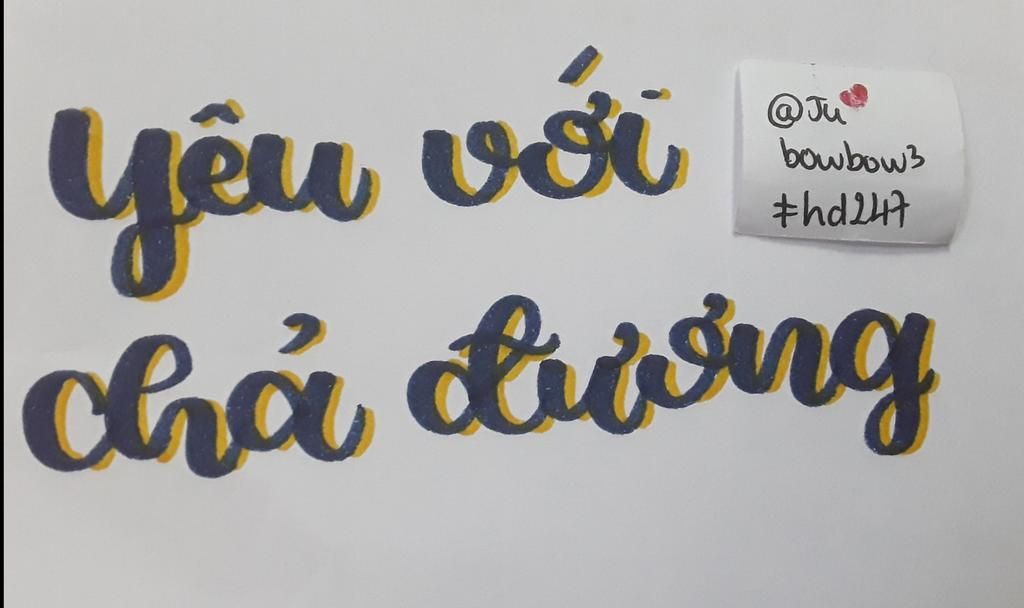 yêu với
chả đương
@Ju
bowbow3
#hd247